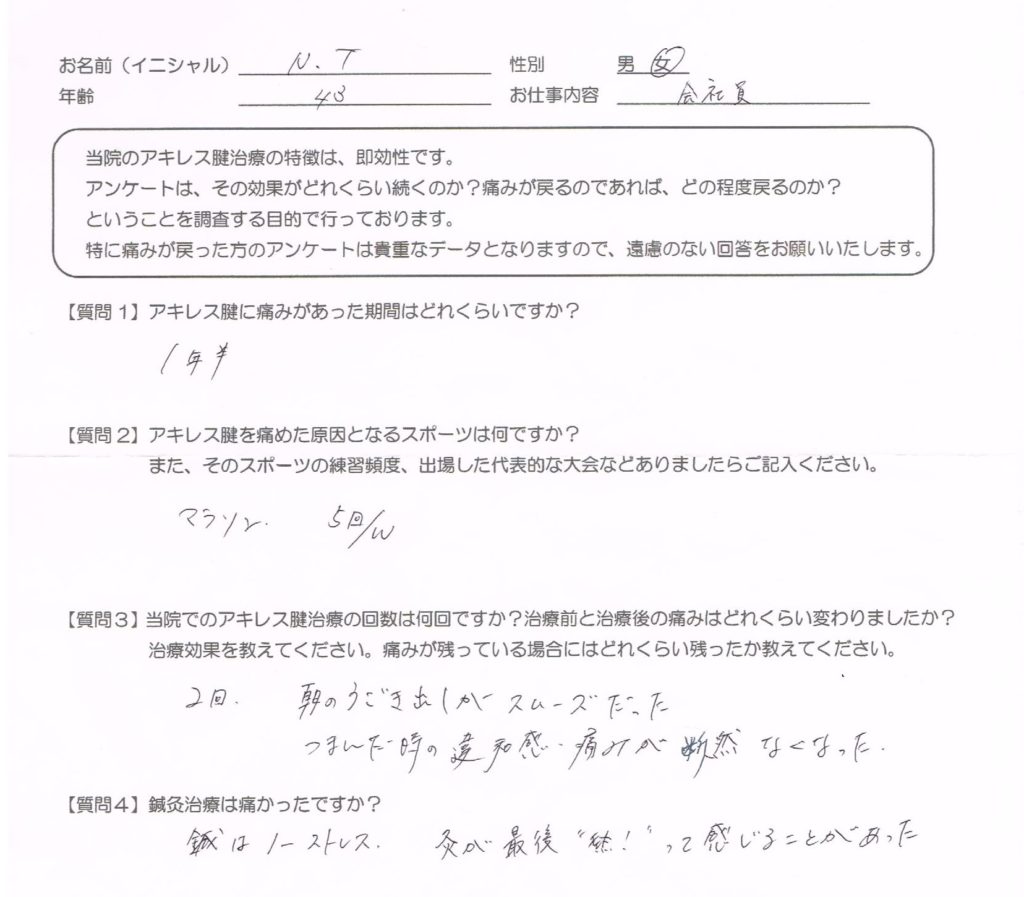 お名前（イニシャル） N.T 性別 男 女
年齢 43 お仕事内容 会社員
当院のアキレス腱治療の特徴は、即効性です。
アンケートは、その効果がどれくらい続くのか？痛みが戻るのであれば、どの程度戻るのか？
ということを調査する目的で行っております。
特に痛みが戻った方のアンケートは貴重なデータとなりますので、遠慮のない回答をお願いいたします。
【質問1】アキレス腱に痛みがあった期間はどれくらいですか？
1年半
【質問2】アキレス腱を痛めた原因となるスポーツは何ですか？
また、そのスポーツの練習頻度、出場した代表的な大会などありましたらご記入ください。
マラソン. 5回/W
【質問3】当院でのアキレス腱治療の回数は何回ですか？治療前と治療後の痛みはどれくらい変わりましたか？
治療効果を教えてください。痛みが残っている場合にはどれくらい残ったか教えてください。
2回. 朝のうごき出しがスムーズだった
つまんだ時の違和感・痛みが断然なくなった.
【質問4】鍼灸治療は痛かったですか？
鍼はノーストレス. 灸が最後“熱！”って感じることがあった